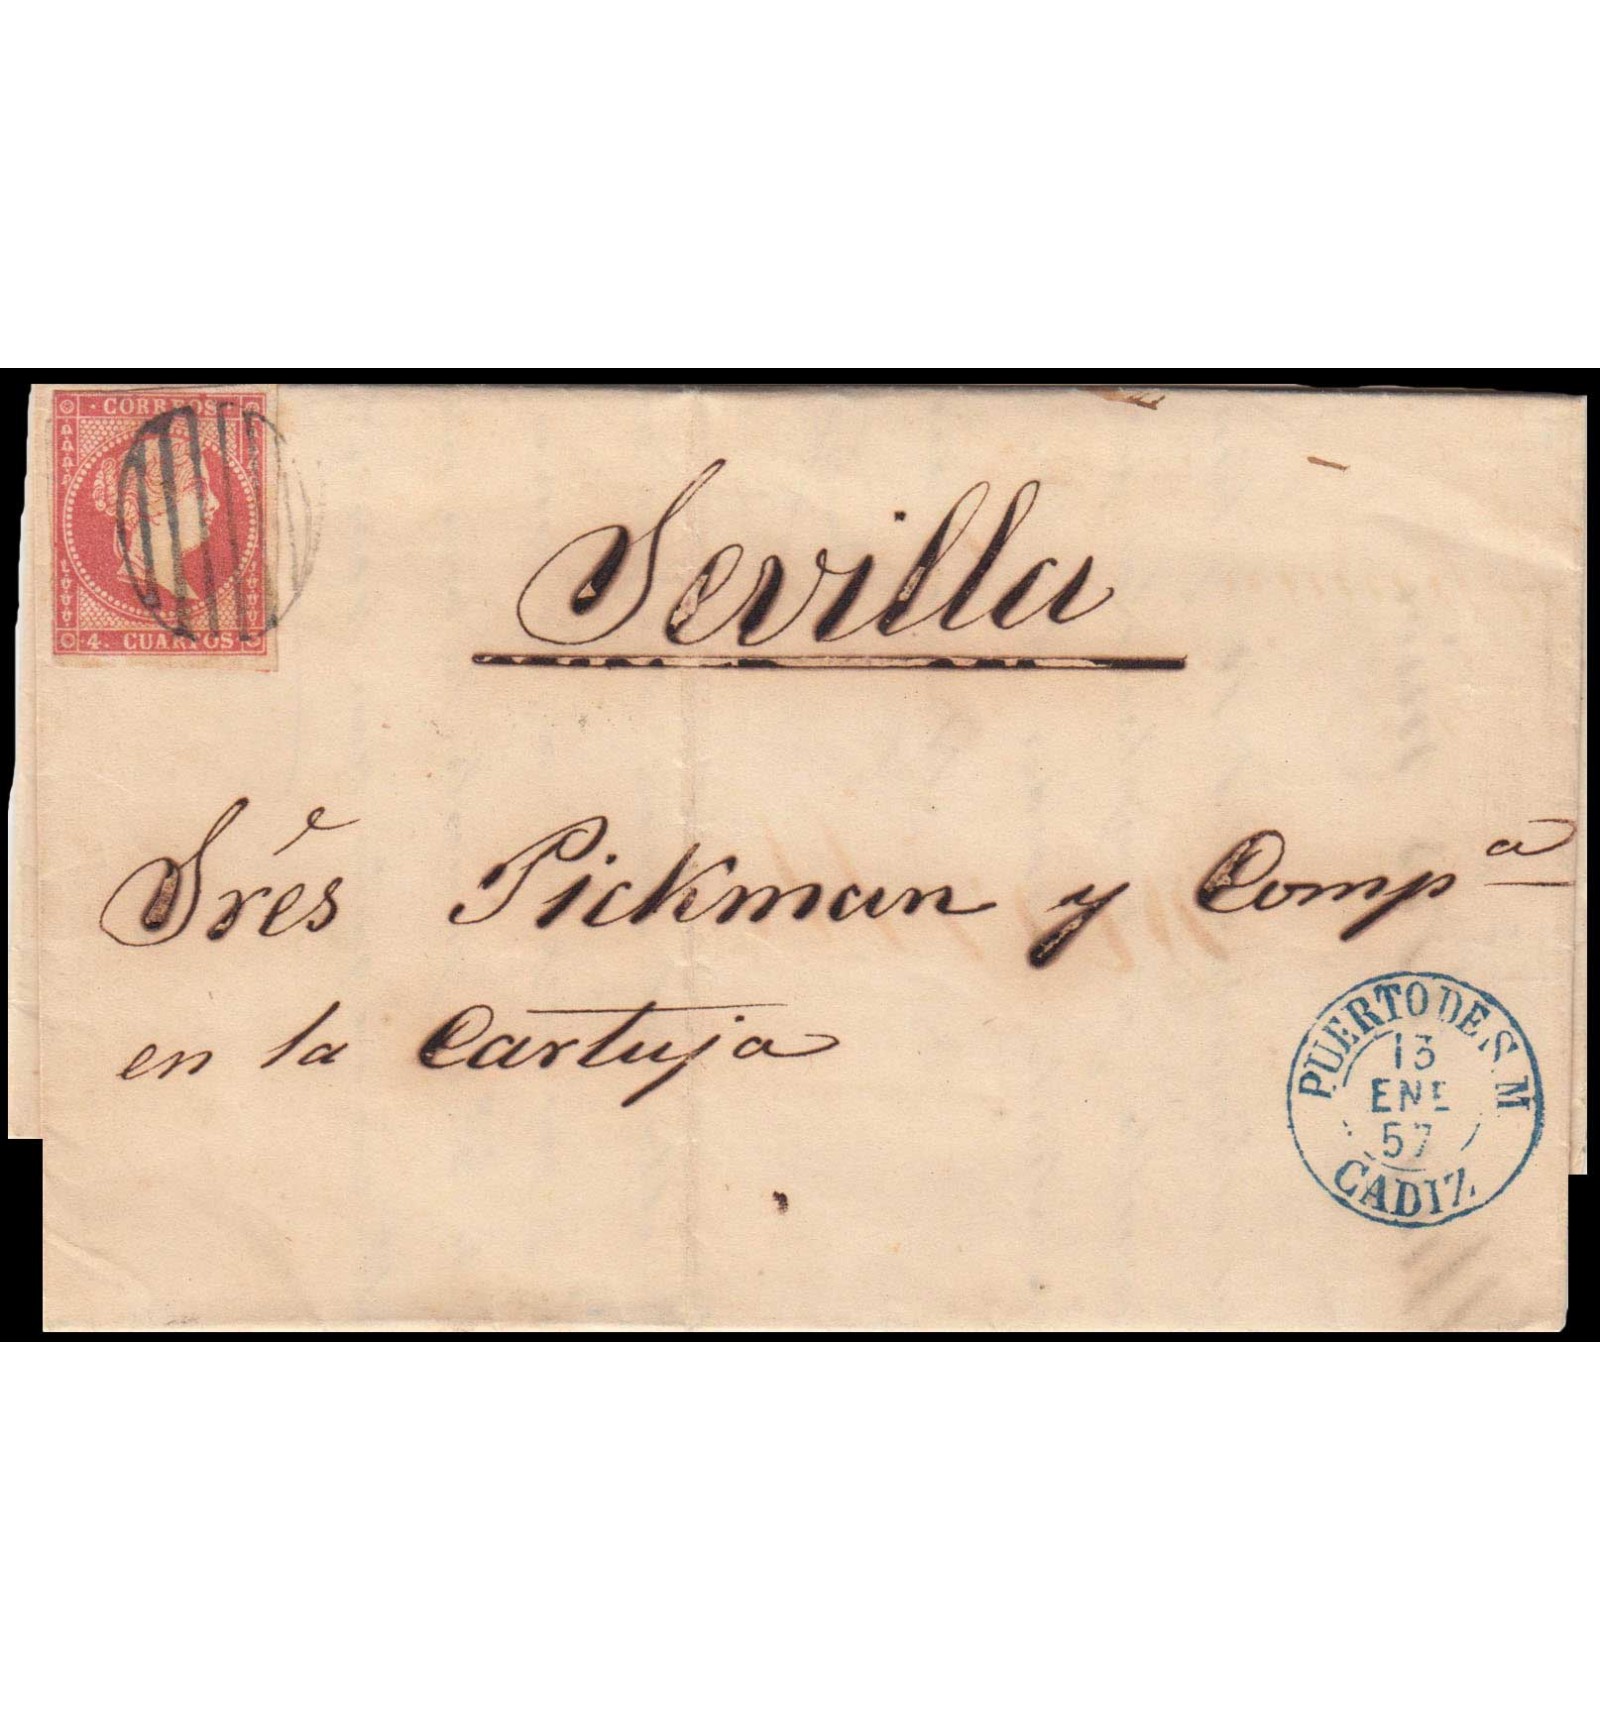 CORREOS
4. CUARTOS
Sevilla
Sres Pickman y Compª
en la Cartuja
PUERTO DE S. M
13
ENE
57
CADIZ